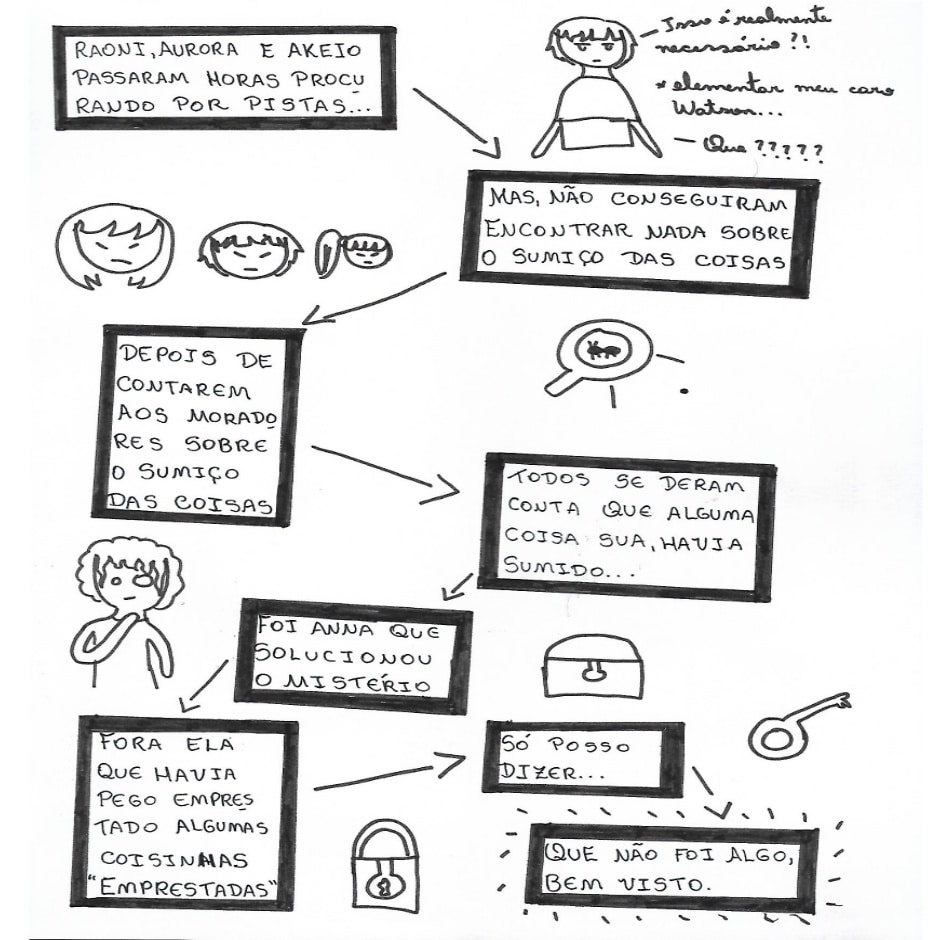 RAONI, AURORA E AKEIO
PASSARAM HORAS PROCU
RANDO POR PISTAS...
- Isso é realmente
necessário?!
* elementar meu caro
Watson...
- Que ?????
MAS, NÃO CONSEGUIRAM
ENCONTRAR NADA SOBRE
O SUMIÇO DAS COISAS
DEPOIS DE
CONTAREM
AOS MORADO
RES SOBRE
O SUMIÇO
DAS COISAS
TODOS SE DERAM
CONTA QUE ALGUMA
COISA SUA, HAVIA
SUMIDO...
FOI ANNA QUE
SOLUCIONOU
O MISTÉRIO
FORA ELA
QUE HAVIA
PEGO EMPRES
TADO ALGUMAS
COISINHAS
"EMPRESTADAS"
SÓ POSSO
DIZER...
QUE NÃO FOI ALGO,
BEM VISTO.